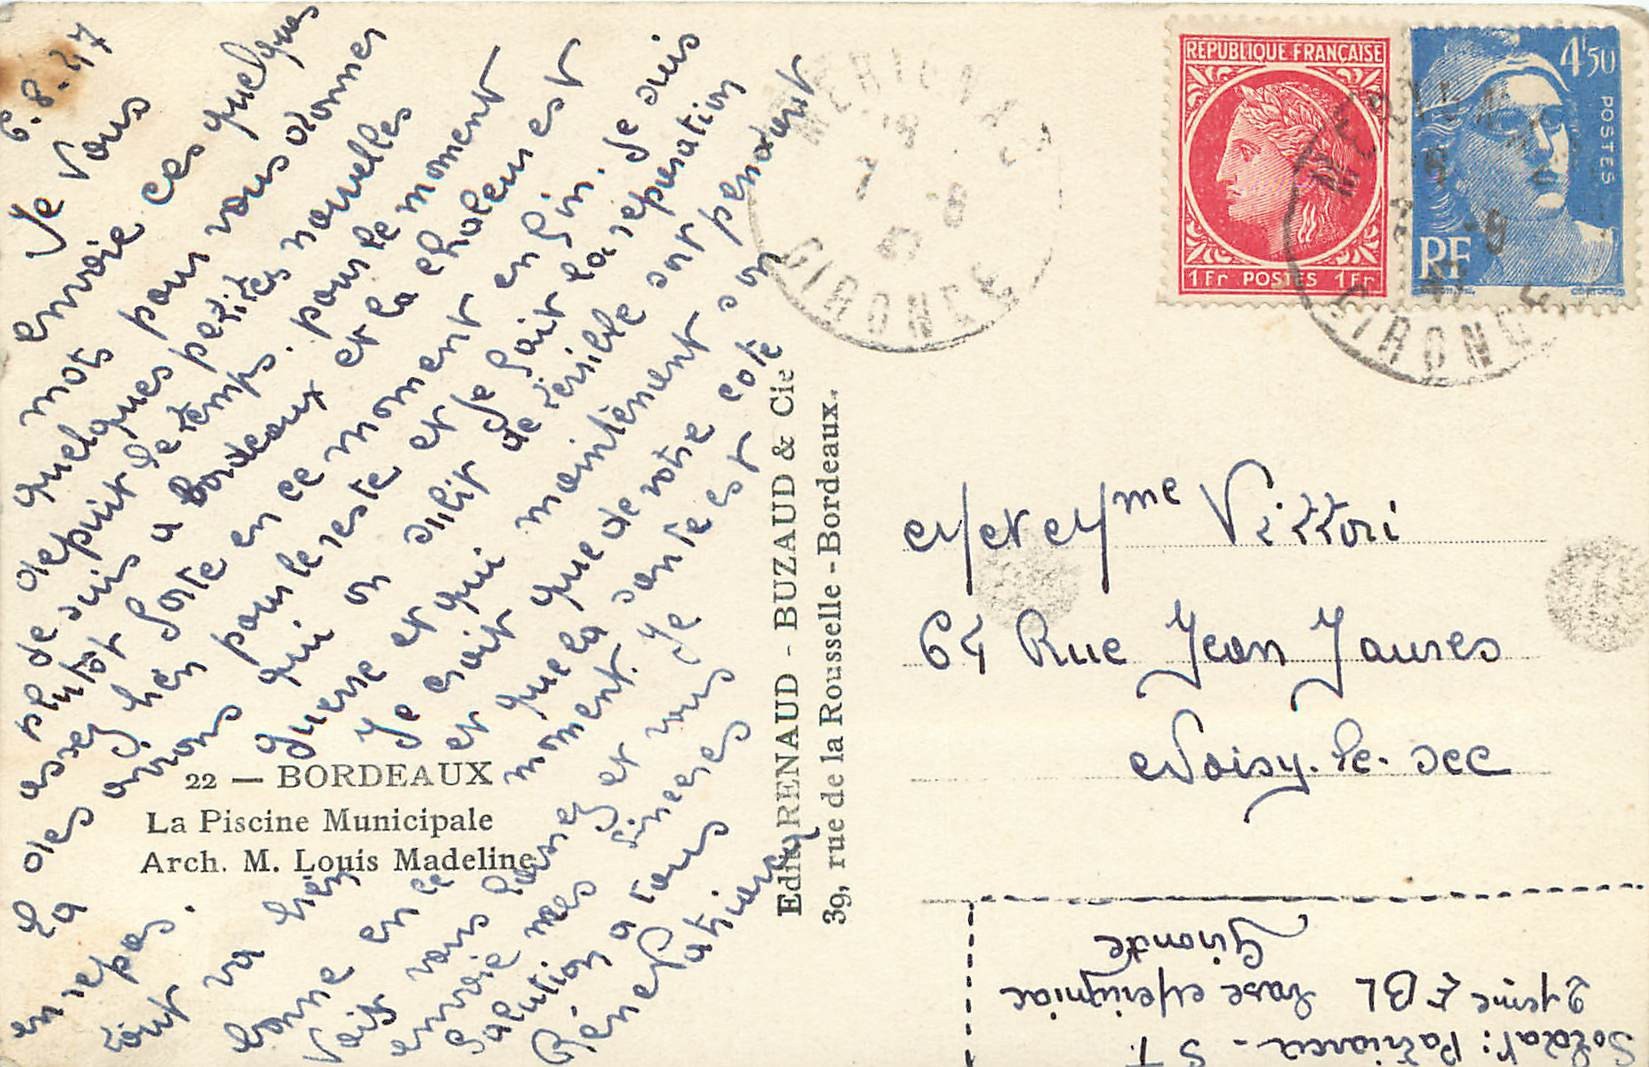 6.8.47
Je vous
envoie ces quelques
mots pour vous donner
quelques petites nouvelles
depuit le temps. pour le moment
je suis a Bordeaux et la chaleur est
plutot forte en ce moment enfin. Je suis
assez bien pour le reste et je fait la reparation
des avions qui on subit de terrible sort pendant
la guerre et qui maintenant son
en repos. Je croit que de votre cote
tout va bien et que la sante est
bonne en ce moment. Je
vais vous laissez et vous
envoie mes sinceres
Salution a tous
René Patriarca
22 — BORDEAUX
La Piscine Municipale
Arch. M. Louis Madeline
Edit. RENAUD - BUZAUD & Cie
39, rue de la Rousselle - Bordeaux.
MERIGNAC
GIRONDE
REPUBLIQUE FRANÇAISE
1 Fr POSTES 1 Fr
4f50
POSTES
RF
MERIGNAC
GIRONDE
M et Mme Vittori
64 Rue Jean Jaures
Noisy-le-sec
Soldat: Patriarca - S T.
21eme E BL base Merignac
Gironde